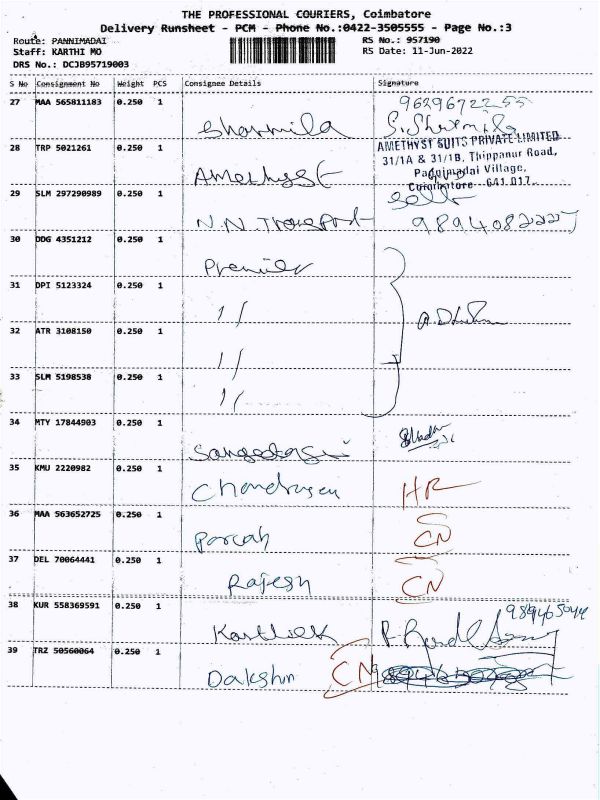 THE PROFESSIONAL COURIERS, Coimbatore
Delivery Runsheet - PCM - Phone No.:0422-3505555 - Page No.:3
Route: PANNIMADAI RS No.: 957190
Staff: KARTHI MO RS Date: 11-Jun-2022
DRS No.: DCJB95719003
S No Consignment No Weight PCS Consignee Details Signature
27 MAA 565811183 0.250 1 Sharmila 9629672255
28 TRP 5021261 0.250 1 Amethyst AMETHYST SUITS PRIVATE LIMITED
31/1A & 31/1B, Thippanur Road,
Pannimadai Village,
Coimbatore - 641 017.
29 SLM 297290989 0.250 1 N.N. Transport 9894082227
30 DDG 4351212 0.250 1 Premier
31 DPI 5123324 0.250 1 11
32 ATR 3108150 0.250 1 11
33 SLM 5198538 0.250 1 11
34 MTY 17844903 0.250 1
35 KMU 2220982 0.250 1 HR
36 MAA 563652725 0.250 1 CN
37 DEL 70064441 0.250 1 Rajesh CN
38 KUR 558369591 0.250 1 Karthick
39 TRZ 50560064 0.250 1 Dakshin CN